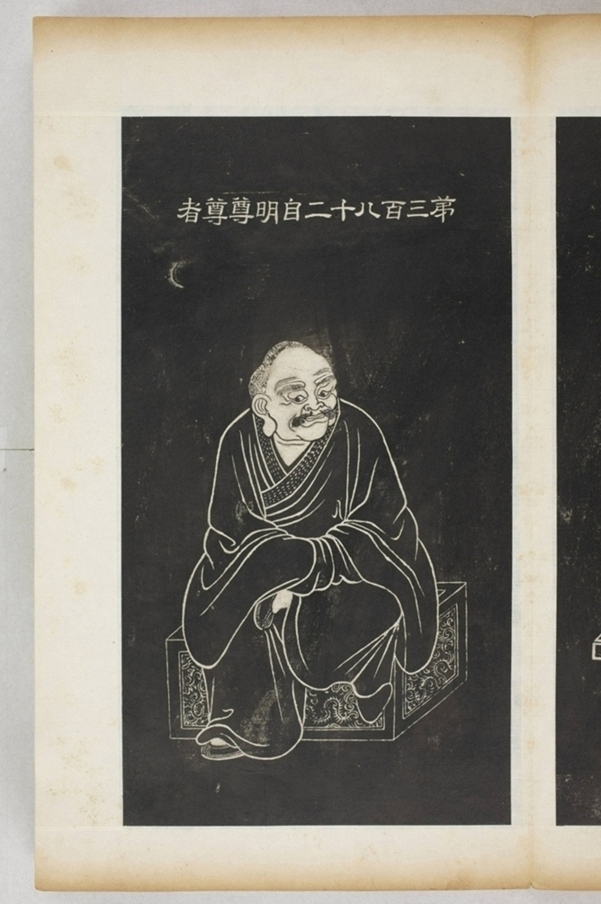 苐三百八十二自明尊尊者